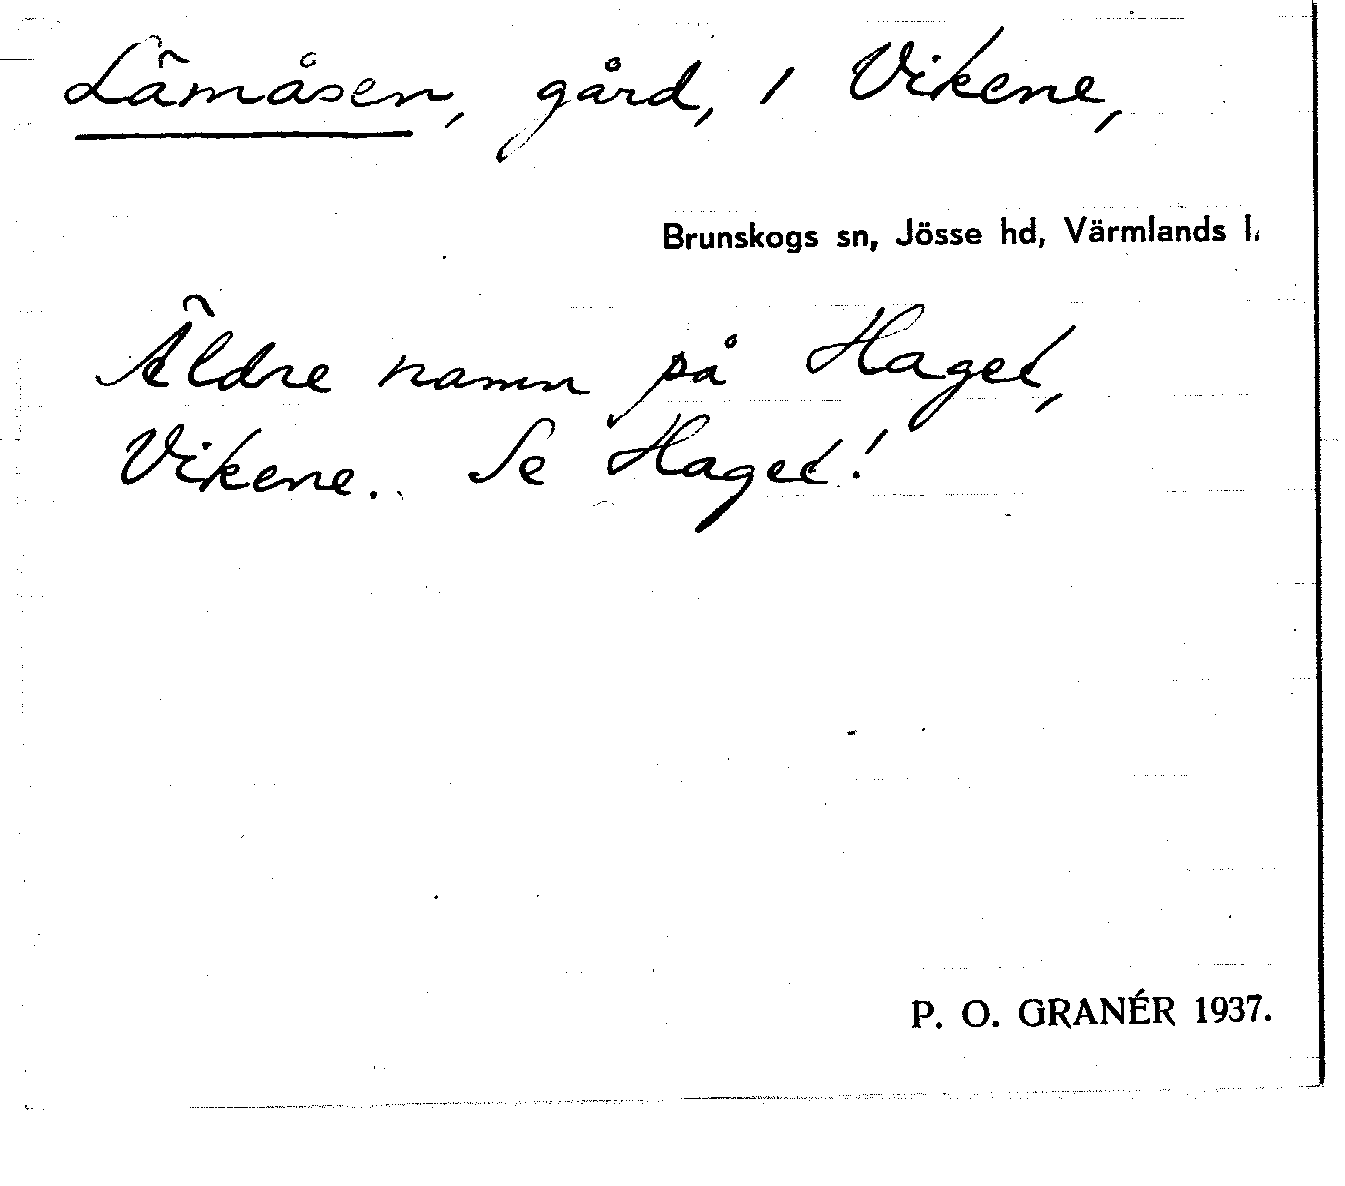 Lämåsen, gård, i Vikene,
Brunskogs sn, Jösse hd, Värmlands l.
Äldre namn på Haget,
Vikene. Se Haget!
P. O. GRANÉR 1937.